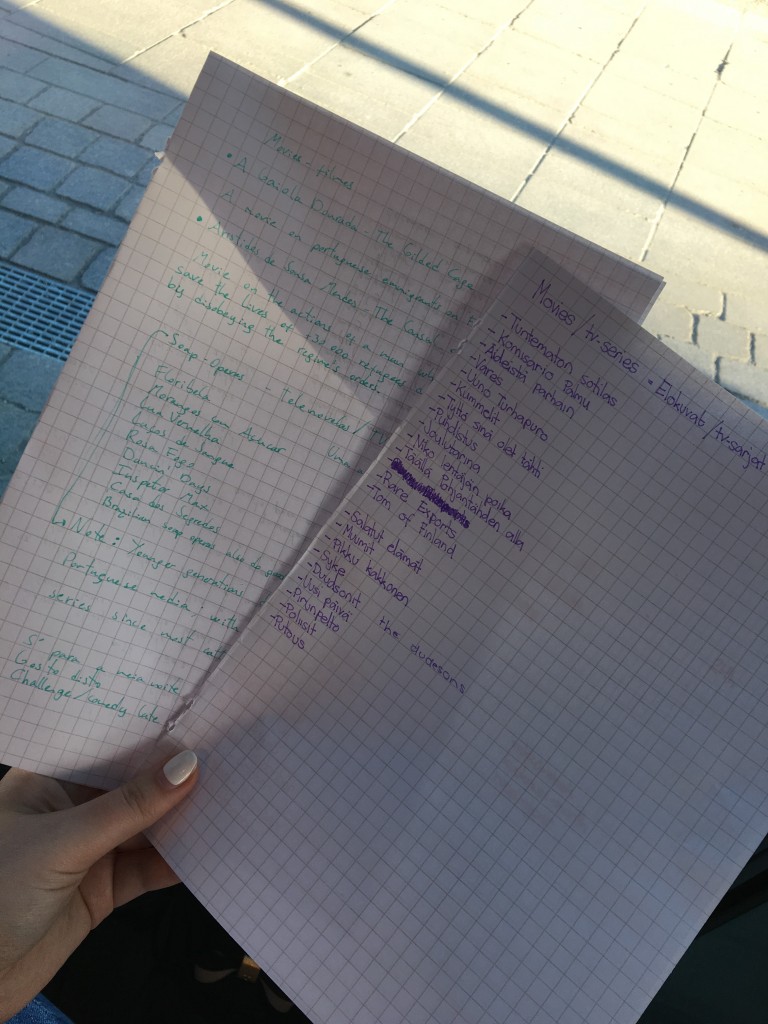 Movies - filmes
• A Gaiola Dourada - The Gilded Cage
A movie on portuguese emmigrants on
• Aristides de Sousa Mendes - The Consul
Movie on the actions of a man who
save the lives of +30 000 refugees
by disobeying the regime's orders.
- Soap-Operas - Telenovelas / TV
Floribela
Morangos com Açúcar
Lua Vermelha
Laços de Sangue
Rosa Fogo
Dancin' Days
Inspetor Max
Casa dos Segredos
Brazilian soap operas also
Note: Younger generations
Portuguese media; with
series since most
5' para a meia noite
Gosto disto
Challenge/comedy late
Movies/tv-series • Elokuvat/tv-sarjat
- Tuntematon sotilas
- Komisario Palmu
- Äideistä parhain
- Vares
- Uuno Turhapuro
- Kummelit
- Tyttö sinä olet tähti
- Puhdistus
- Joulutarina
- Niko lentäjän poika
- Täällä Pohjantähden alla
- Rare Exports
- Tom of Finland
- Salatut elämät
- Muumit
- Pikku kakkonen
- Syke
- Duudsonit the dudesons
- Uusi päivä
- Pirunpelto
- Poliisit
- Putous